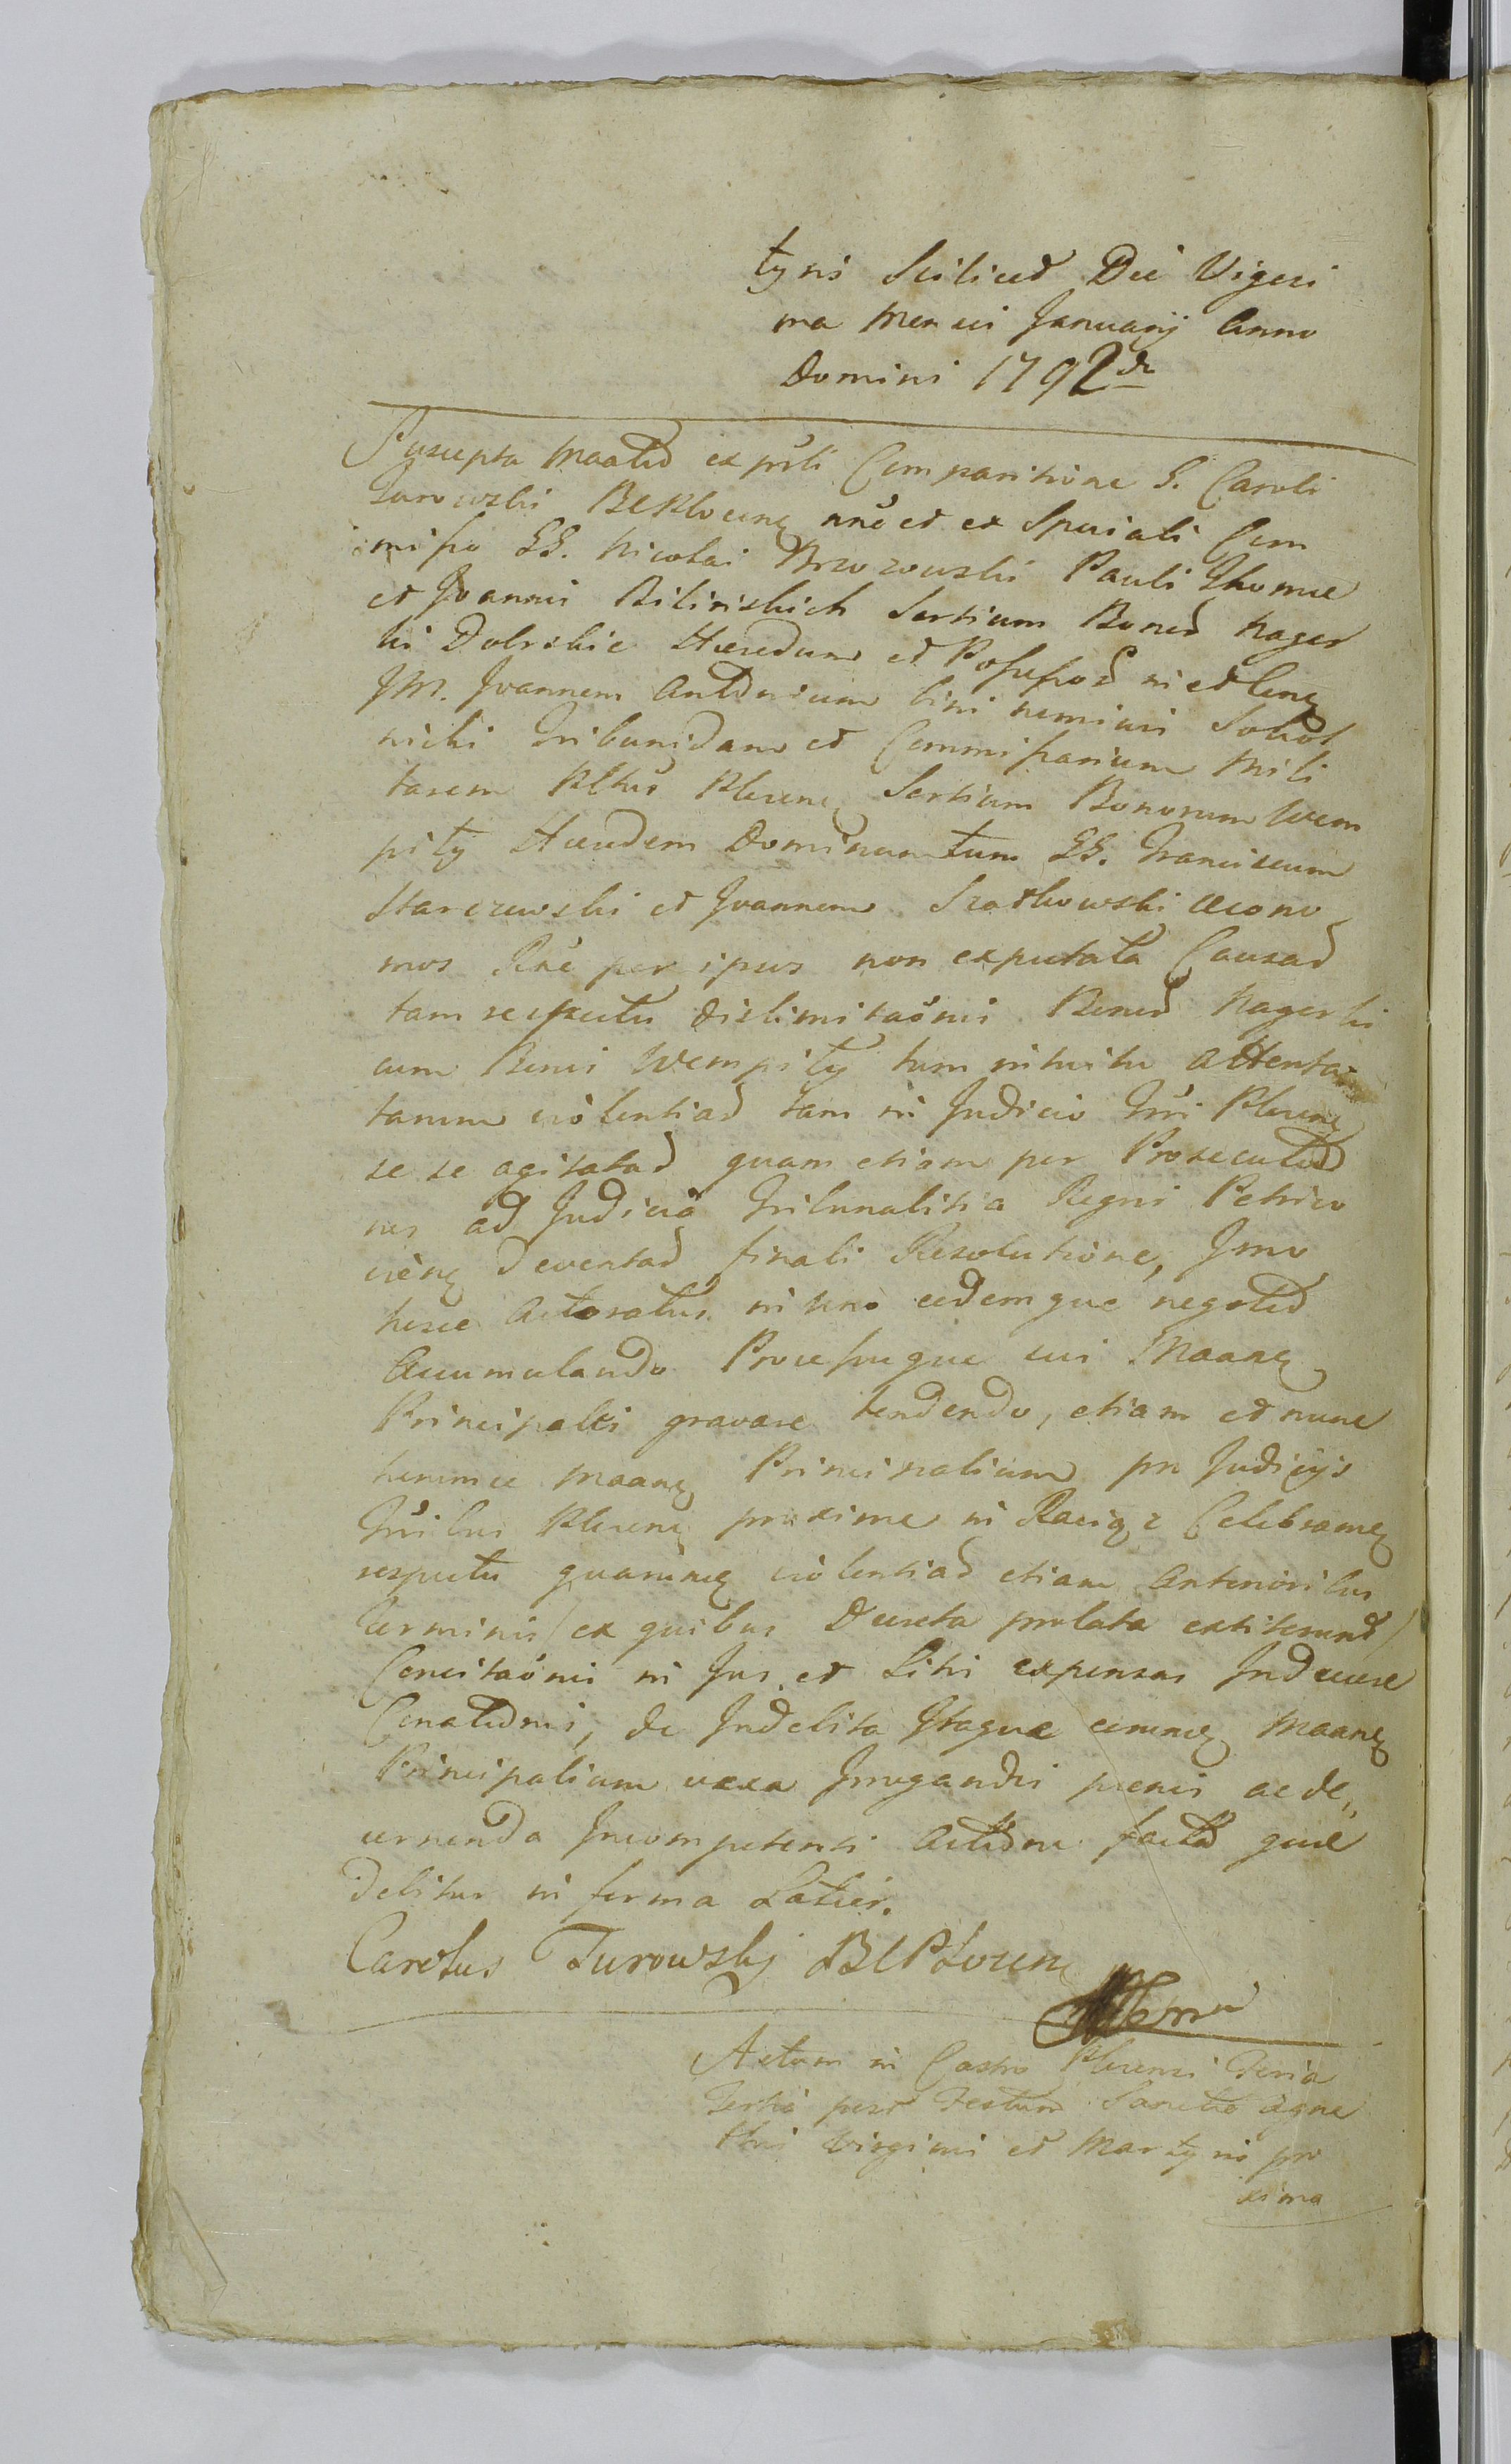 tynis Scilicet Die Vigesi
ma Mensis Januarij Anno
Domini 1792do
Suscepta Maatio ex pnti Comparitione G. Caroli
Turowski BCPlocens nnō et ex Speciali Com
misso GG. Nicolai Brzozowski Pauli Thomae
et Joannis Bilinskich Sortium Bonor Nagor
ki Dobrskie Haeredum et Possessor
JM. Joannem Antonium
nicki Tribunidam et Commissarium Mili
tarem Pltūs Plocens Sortium Bonorum Wem
pily Haeredem Dominum tum GG. Franciscum
Starczewski et Joannem Szatkowski oecono
mos Rnē per ipsos non expectata Causar
tam respectu dislimitaōnis Bonor Nagorki
cum Bonis Wempily tum intuitu attenta
tarum violentiar tam in Judicio Trri Plocens
se se agitatar quam etiam per Prosecutio
nes ad Judicia Tribunalitia Regni Petrico
viens devectar finali Resolutione, Imo
hasce Actoratus in uno eodemque negotio
Accumulando Processusque suis Maans
Principales gravare tendendo, etiam et nunc
horumce Maans Principalium pro Judicijs
Trribus Plocens proxime in Raciąz Celebrans
respectu quarumq violentiar etiam Anterioribus
Terminis / ex quibus Decreta prolata extiterunt /
Concitaōnis in Jus et Litis expensas Inducere
Conationis, de Indebita Itaque eorumq Maans
Principalium vexa Irrogandis poenis ac de„
cernenda Incompetenti Actione facta quae
debitur in forma Latior.
Carolus Turowskj BCPlocen
Actum in Castro Plocensi Feria
Tertia post Festum Sanctae Agne
this Virginis et Martynis pro
xima